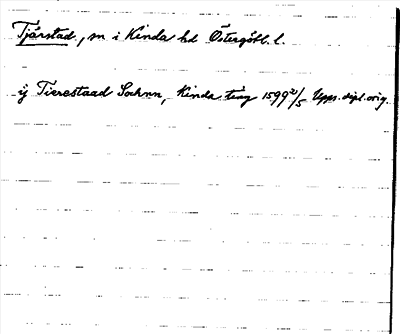 Tjärstad, sn i Kinda hd Östergötl. l.
ij Tierestaad Sochnn, Kinda ting 1599 2/5 Upps. dipl. orig.